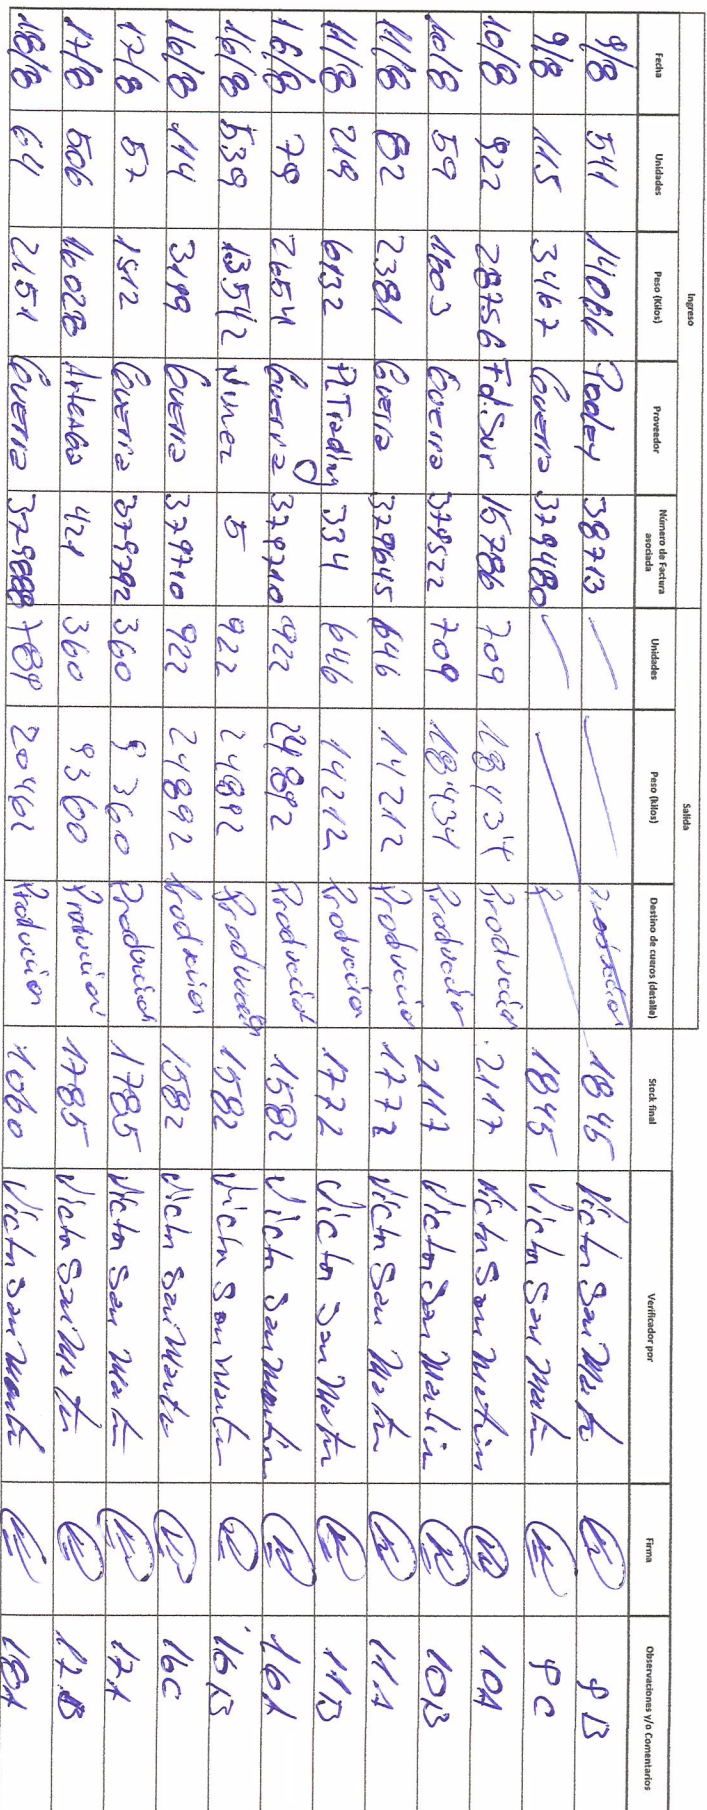 Ingreso Salida
Fecha Unidades Peso (Kilos) Proveedor Número de Factura asociada Unidades Peso (kilos) Destino de cueros (detalle) Stock final Verificador por Firma Observaciones y/o Comentarios
9/8 541 14066 38713 Producción 1845 Victor San Martin 9B
9/8 115 3467 Guerra 379480 1845 Victor San Martin 9C
10/8 922 28756 Fd. Sur 15786 709 18434 Producción 2117 Victor San Martin 10A
10/8 59 1603 Guerra 379522 709 18434 Producción 2117 Victor San Martin 10B
11/8 82 2381 Guerra 379645 646 14212 Producción 1772 Victor San Martin 11A
11/8 219 6132 Trading 334 646 14212 Producción 1772 Victor San Martin 11B
16/8 79 2654 Guerra 379710 922 24892 Producción 1582 Victor San Martin 16A
16/8 539 13542 Nuñez 5 922 24892 Producción 1582 Victor San Martin 16B
16/8 114 3199 Guerra 379710 922 24892 Producción 1582 Victor San Martin 16C
17/8 57 1512 Guerra 379792 360 9360 Producción 1785 Victor San Martin 17A
17/8 506 16028 421 360 9360 Producción 1785 Victor San Martin 17B
18/8 64 2151 Guerra 379888 789 20462 Producción 1060 Victor San Martin 18A